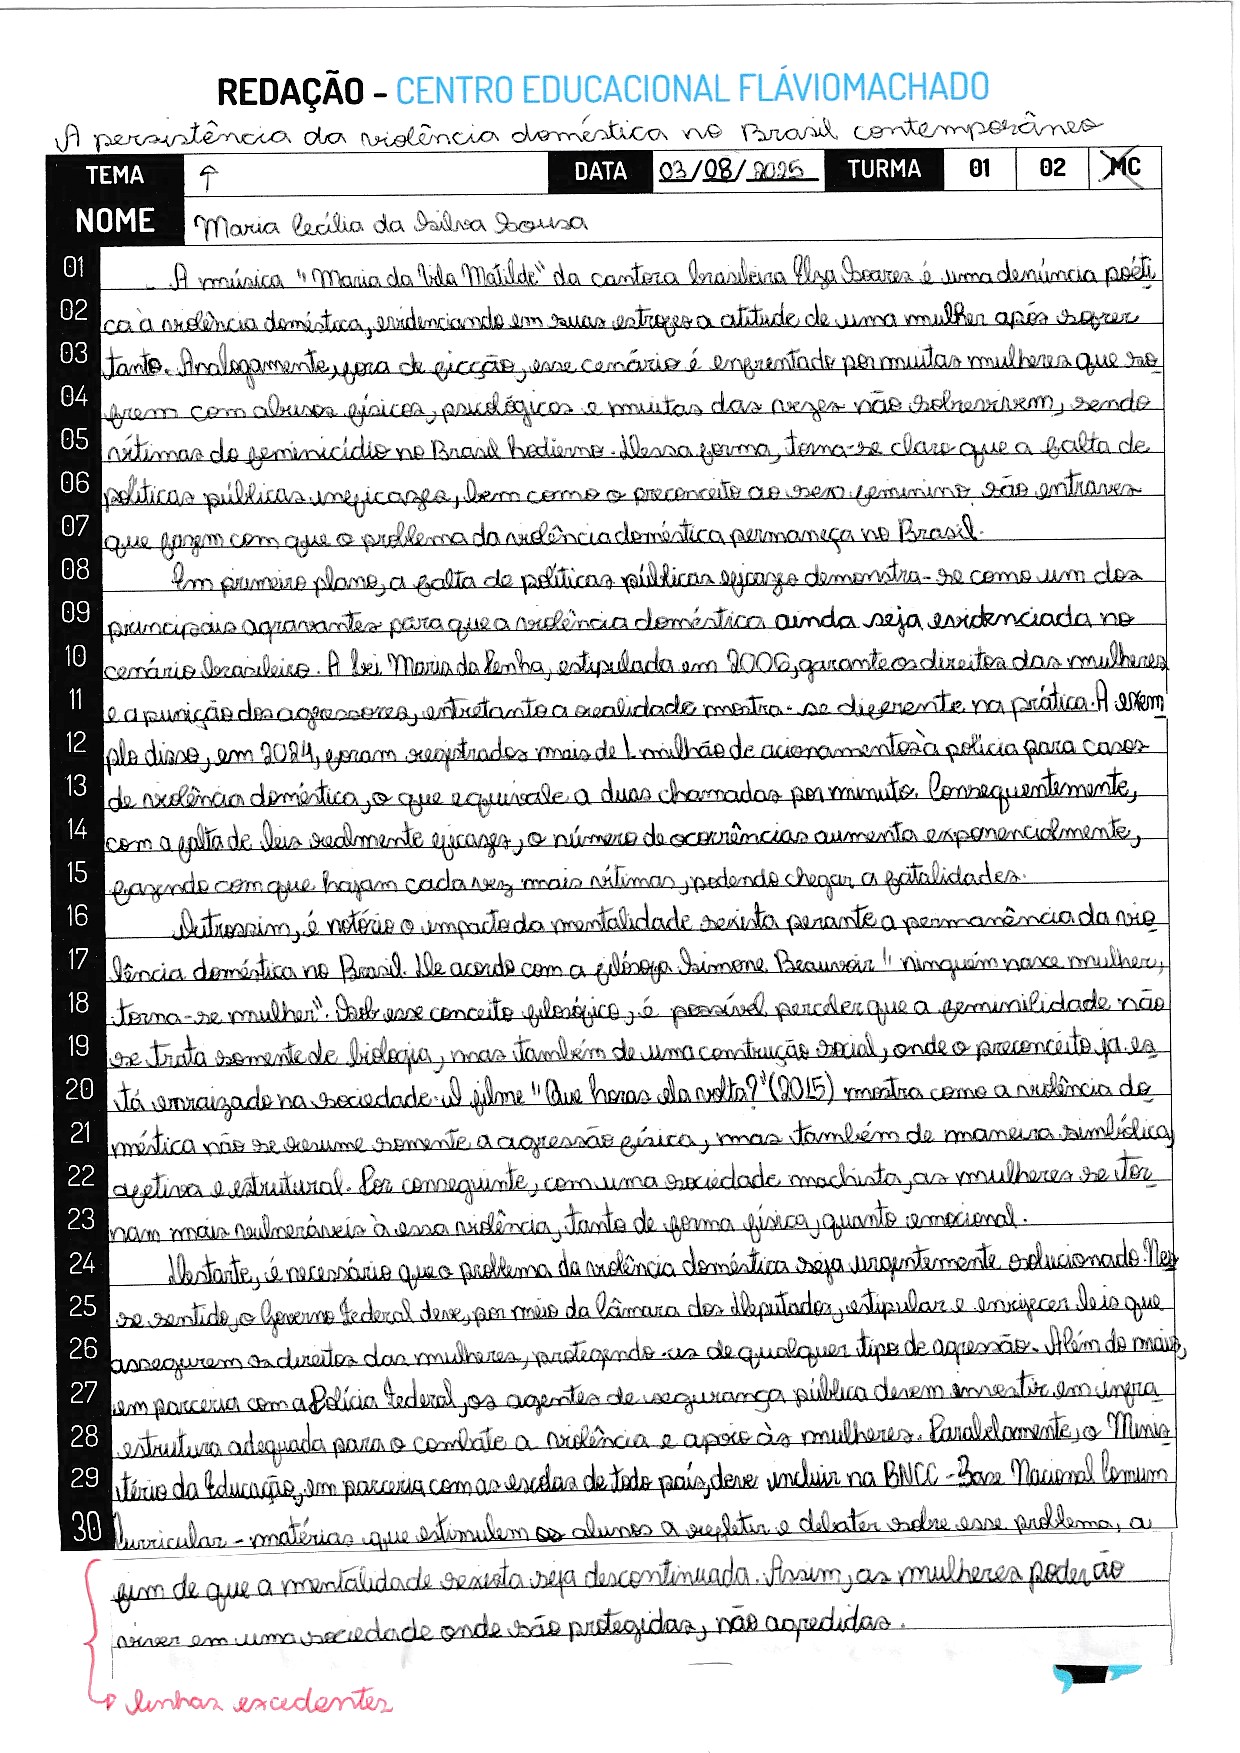 REDAÇÃO - CENTRO EDUCACIONAL FLÁVIOMACHADO
A persistência da violência doméstica no Brasil contemporâneo
TEMA ↑ DATA 03/08/2025 TURMA 01 02 MC
NOME Maria Cecília da Silva Sousa
01 A música "Maria da Vila Matilde" da cantora brasileira Elza Soares é uma denúncia poéti
02 ca à violência doméstica, evidenciando em suas estrofes a atitude de uma mulher após sofrer
03 tanto. Analogamente, fora de ficção, esse cenário é enfrentado por muitas mulheres que so
04 frem com abusos físicos, psicológicos e muitas das vezes não sobrevivem, sendo
05 vítimas do feminicídio no Brasil hodierno. Dessa forma, torna-se claro que a falta de
06 políticas públicas ineficazes, bem como o preconceito ao sexo feminino são entraves
07 que fazem com que o problema da violência doméstica permaneça no Brasil.
08 Em primeiro plano, a falta de políticas públicas eficazes demonstra-se como um dos
09 principais agravantes para que a violência doméstica ainda seja evidenciada no
10 cenário brasileiro. A lei Maria da Penha, estipulada em 2006, garante os direitos das mulheres
11 e a punição dos agressores, entretanto a realidade mostra-se diferente na prática. A exem
12 plo disso, em 2024, foram registrados mais de 1 milhão de acionamentos à polícia para casos
13 de violência doméstica, o que equivale a duas chamadas por minuto. Consequentemente,
14 com a falta de leis realmente eficazes, o número de ocorrências aumenta exponencialmente,
15 fazendo com que hajam cada vez mais vítimas, podendo chegar a fatalidades.
16 Outrossim, é notório o impacto da mentalidade sexista perante a permanência da vio
17 lência doméstica no Brasil. De acordo com a filósofa Simone Beauvoir "ninguém nasce mulher,
18 torna-se mulher". Sob esse conceito filosófico, é possível perceber que a feminilidade não
19 se trata somente de biologia, mas também de uma construção social, onde o preconceito já es
20 tá enraizado na sociedade. O filme "Que horas ela volta?" (2015) mostra como a violência do
21 méstica não se resume somente a agressão física, mas também de maneira simbólica,
22 afetiva e estrutural. Por conseguinte, com uma sociedade machista, as mulheres se tor
23 nam mais vulneráveis à essa violência, tanto de forma física, quanto emocional.
24 Destarte, é necessário que o problema da violência doméstica seja urgentemente solucionado. Nes
25 se sentido, o Governo Federal deve, por meio da Câmara dos Deputados, estipular e enrijecer leis que
26 assegurem os direitos das mulheres, protegendo-as de qualquer tipo de agressão. Além do mais,
27 em parceria com a Polícia Federal, os agentes de segurança pública devem investir em infra
28 estrutura adequada para o combate a violência e apoio às mulheres. Paralelamente, o Minis
29 tério da Educação, em parceria com as escolas de todo país, deve incluir na BNCC - Base Nacional Comum
30 Curricular - matérias que estimulem os alunos a refletir e debater sobre esse problema, a
fim de que a mentalidade sexista seja descontinuada. Assim, as mulheres poderão
viver em uma sociedade onde são protegidas, não agredidas.
linhas excedentes